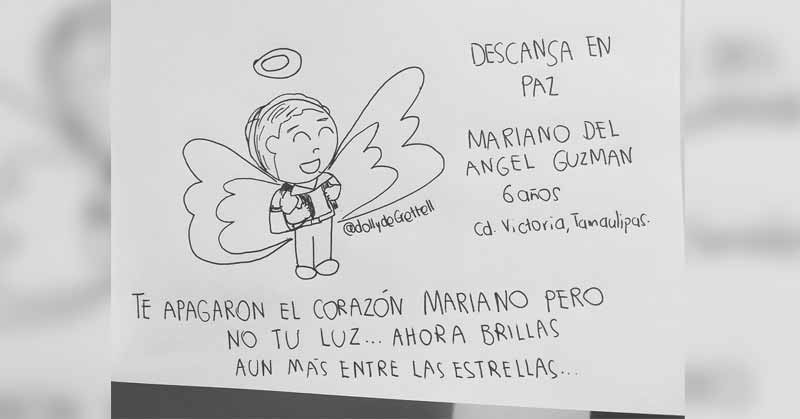 DESCANSA EN
PAZ
MARIANO DEL
ANGEL GUZMAN
6 años
Cd. Victoria, Tamaulipas.
@dollydeGrettell
TE APAGARON EL CORAZÓN MARIANO PERO
NO TU LUZ... AHORA BRILLAS
AUN MÁS ENTRE LAS ESTRELLAS...